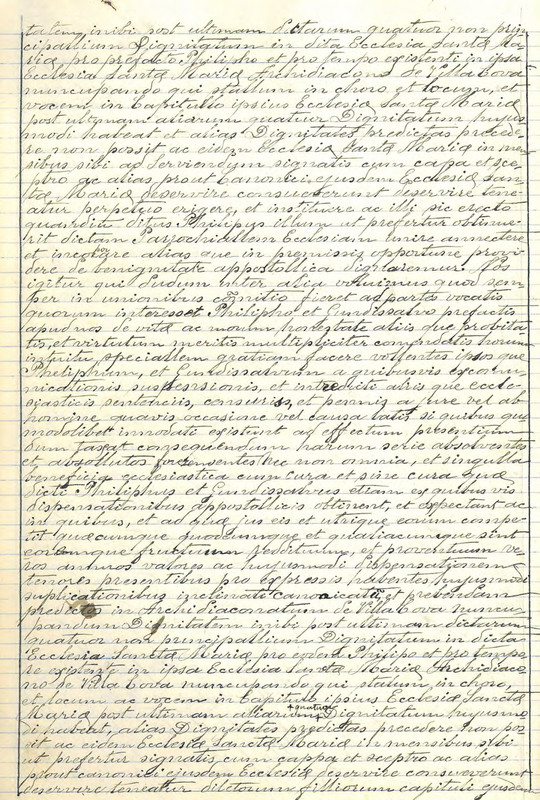 tatem, inibi post ultimam dictarum quatuor non prin
cipallium Dignitatum in dita Ecclesia Santæ Ma
riæ, pro prefacto Philipho et pro tempo existenti in ipsa
Ecclesia Santæ Mariæ Archidiacono de Villa Cova
nuncupando qui stallum in choro et locum, et
vocem, in Capitullo ipsius Ecclesiæ Santæ Mariæ
post ultimam aliarum quatuor Dignitatum hujus
modi habeat et alias Dignitates predictas precede
re non possit ac eidem Ecclesiæ Santæ Mariæ in men
sibus sibi ad Serviendum signatis cum capa et sce
ptro ac alias prout Canonici, ejusdem Ecclesiæ San
tæ Mariæ deservire consueverunt deservire tene
atur perpetuo erigere, et instituere ac illi sic erecto
quandiu ditus Philipus illum ut prefertur obtinue
rit dictam Parrochiallem Ecclesiam unire annectere
et incorporare alias que in premissis opportune provi
dere de benignitate appostollica dignaremur. Nos
igitur qui dudum inter alia voluimus quod sem
per in unionibus comitio fieret ad partes vocatis
quorum interesset Philipho et Gundissalvo prefactis
apud nos de vitæ ac morum, honestate aliis que probita
tis, et virtutum meritis multipliciter commodatis horum
intuitu, speciallem gratiam facere vollentes ipsos que
Pheliphum, et Gundissalvum a quibusvis excomu
nicationis suspessionis, et intrediti aliis que eccle
siasticis sentenciis, consuris, et pennis a jure vel ab
homine quavis occasione vel causa latis si quibus quo
modolibet innodati existunt ad effectum presentium
dum taxat consequendum harum serie absolventes
et absollutos fore censentes Nec non omnia, et singulla
beneficia ecclesiastica cum Cura et sine cura quæ
dicti Philiphus et Gundissalvus etiam ex quibus vis
dispensationibus appostollicis obtinent, et expectant ac
in quibus, et ad quæ jus eis et utrique eorum compe
tit quæcumque quodcumque et qualiacumque sint
eorumque fructuum redditum, et proventuum ve
ros annuos valores ac hujusmodi dispensationem
tenores presentibus pro expressis habentes hujusmodi
suplicationibus inclinati canonicatū, et prebendam
predictos in Archidiaconatum de Villa Cova nuncu
pandum Dignitatem inibi post ultimam dictarum
quatuor non principallium Dignitatum in dicta
Ecclesia Sanctæ Mariæ pro eodem Philipo et pro tempo
re existenti in ipsa Ecclesia Sanctæ Mariæ Archidiaco
no de Villa Cova nuncupando qui stalum, in choro,
et locum ac vocem in Capitulo ipsius Ecclesiæ Sanctæ
Mariæ post ultimam aliarum quatuor Dignitatum hujusmo
di habeat, alias Dignitates predictas precedere non pos
sit ac eidem Ecclesiæ Sanctæ Mariæ in mensibus sibi
ut prefertur signatis cum cappa et sceptro ac alias
prout canonici ejusdem Ecclesiæ deservire consueverunt
deservire teneatur dilectorum filliorum capituli ejusdem